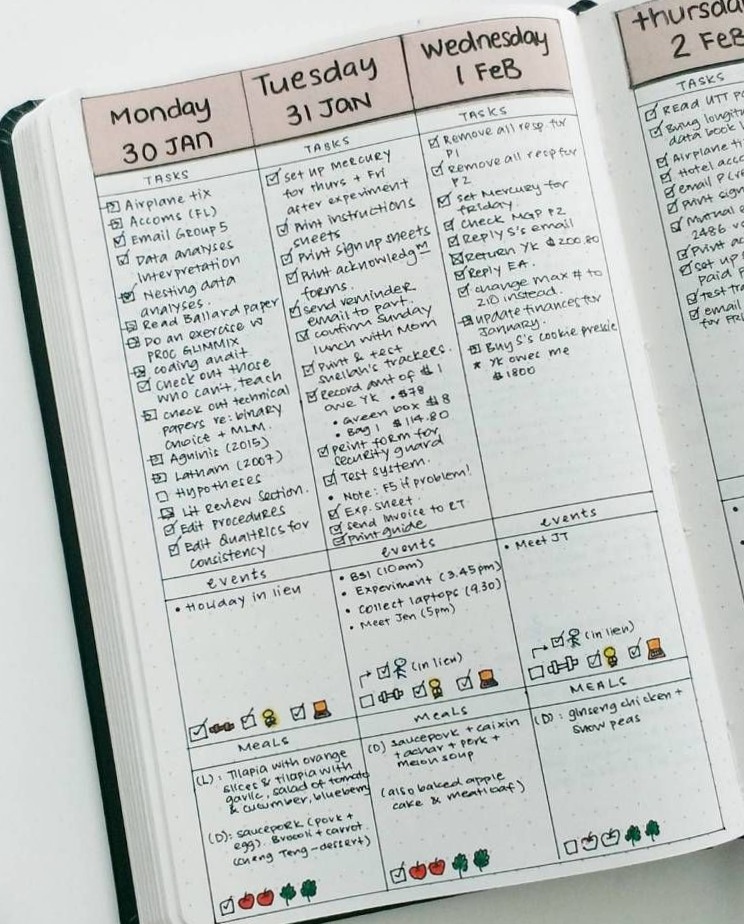 Monday
30 JAN
TASKS
Airplane tix
Accoms (FL)
Email Group 5
Data analyses
Interpretation
Nesting data
analyses.
Read Ballard paper
Do an exercise w
PROC GLIMMIX
coding audit
Check out those
who can't, teach
check out technical
papers re: binary
choice + MLM.
Aguinis (2015)
Latham (2007)
Hypotheses
Lit Review Section.
Edit Procedures
Edit Qualtrics for
consistency
events
• Holiday in lieu
MEALS
(L): Tilapia with orange
slices & tilapia with
garlic, salad of tomato
& cucumber, blueberry
(D): saucepork (pork +
egg). Brocoli + carrot.
(Cheng Teng - dessert)
Tuesday
31 JAN
TASKS
Set up MERCURY
for thurs + Fri
after experiment
Print instructions
sheets
Print signup sheets
Print acknowledgm
forms.
send reminder
email to part.
confirm Sunday
lunch with Mom
Print & test
sheilah's trackers.
Record amt of $ I
owe YK • $78
• Green box $8
• Bag 1 $114.80
print form for
security guard
Test system.
• Note: F5 if problem!
Exp. sheet.
send Invoice to ET
Print guide
events
• BSI (10am)
• Experiment (3.45pm)
• Collect laptops (9.30)
• Meet Jen (5pm)
(in lieu)
Meals
(D) saucepork + caixin
+ achar + pork +
melon soup
(also baked apple
cake & meatloaf)
Wednesday
1 FEB
TASKS
Remove all resp for
P1
Remove all resp for
P2
Set Mercury for
friday.
Check MGP P2
Reply S's email
Return YK $200.80
Reply EA.
change max # to
210 instead.
update finances for
January.
Buy S's cookie
* YK owes me
$1800
events
• Meet JT
(in lieu)
MEALS
(D): ginseng chicken +
snow peas
thursda
2 FEB
TASKS
READ UTT
longit
data book
Airplane ti
Hotel acc
email
Print sign
2486
Print a
Set up
paid
test tra
email
for FRI